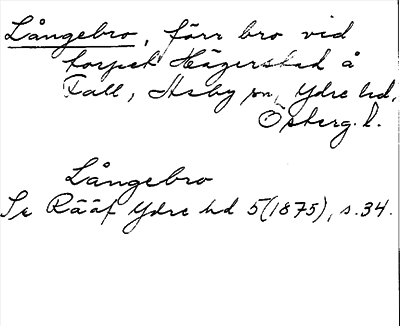 Långebro, förr bro vid
torpet Hägerstad å
Fall, Asby sn, Ydre hd,
Östergl.
Långebro
Se Rääf Ydre hd 5(1875), s.34.